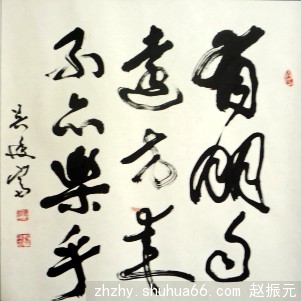 有朋自
遠方来
不亦樂乎
zhzhy.shuhua66.com 赵振元